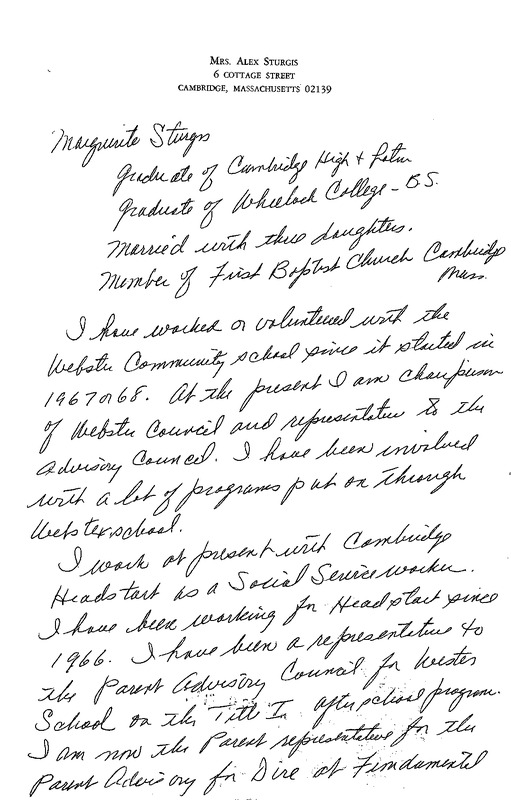 MRS. ALEX STURGIS
6 COTTAGE STREET
CAMBRIDGE, MASSACHUSETTS 02139
Marguerite Sturgis
graduate of Cambridge High & Latin
graduate of Wheelock College - BS.
Married with three daughters.
Member of First Baptist Church Cambridge
Mass.
I have worked or volunteered with the
Webster Community school since it started in
1967 or 68. At the present I am chairperson
of Webster Council and representative to the
Advisory Council. I have been involved
with a lot of programs put on through
Webster school.
I work at present with Cambridge
Headstart as a Social Service worker.
I have been working for Headstart since
1966. I have been a representative to
the Parent Advisory Council for Webster
School on the Title I after school program.
I am now the Parent representative for the
Parent Advisory for Dire at Fundamental